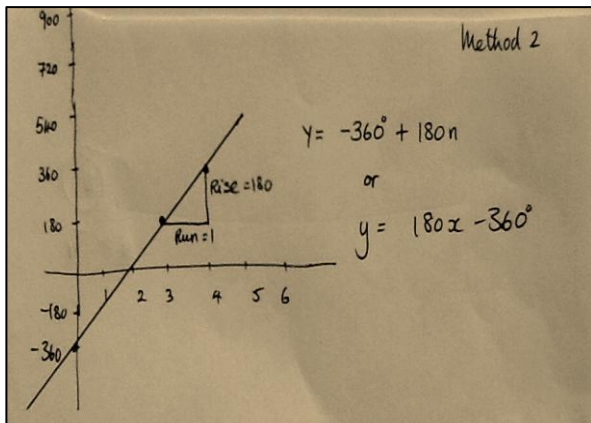 Method 2
900
720
540
360
180
-180
-360
1 2 3 4 5 6
Rise = 180
Run = 1
Y = -360° + 180n
or
y = 180x - 360°